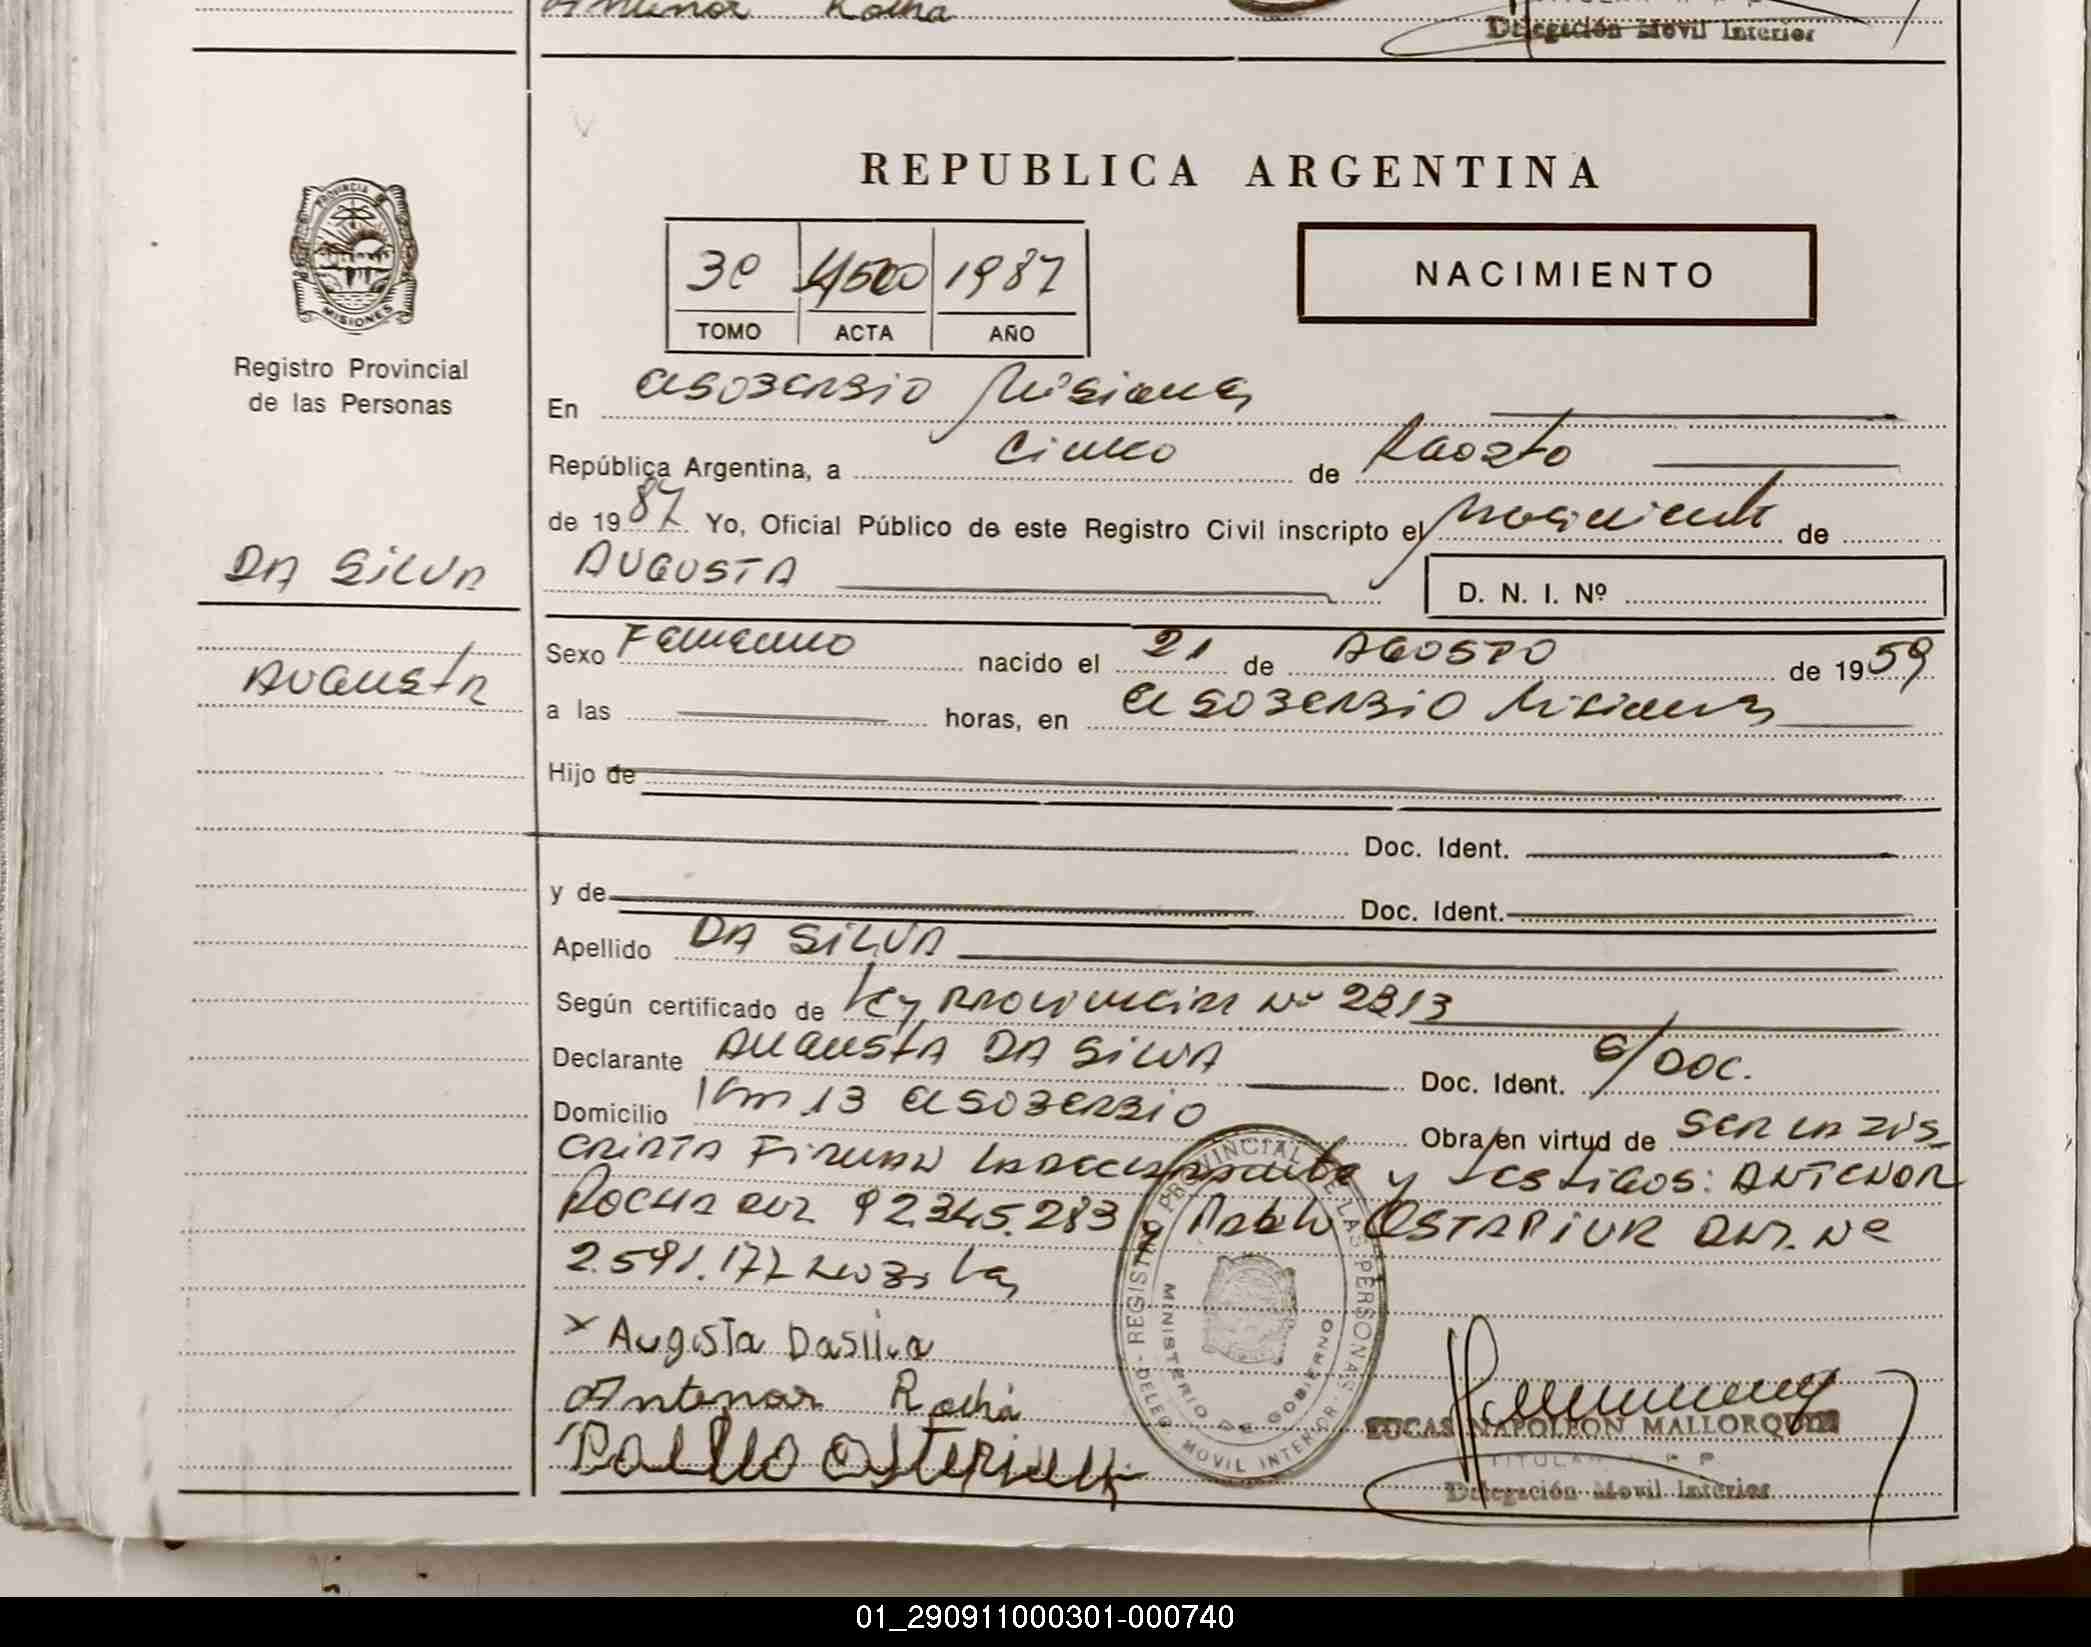 Antenor Rocha
Delegación Movil Interior
REPUBLICA ARGENTINA
PROVINCIA DE
MISIONES
3e 4500 1987
TOMO ACTA AÑO
NACIMIENTO
Registro Provincial
de las Personas
En elsoberbio Misiones
República Argentina, a Cinco de Agosto
de 1987 Yo, Oficial Público de este Registro Civil inscripto el Nacimiento de
AUGUSTA
D. N. I. Nº
DA SILVA
AUGUSTA
Sexo Femenino nacido el 21 de AGOSTO de 1959
a las horas, en el SOBERBIO Misiones
Hijo de
Doc. Ident.
y de Doc. Ident.
Apellido DA SILVA
Según certificado de Ley PROVINCIAL Nº 2313
Declarante AUGUSTA DA SILVA Doc. Ident. S/DOC.
Domicilio Km 13 el SOBERBIO Obra en virtud de SER LA INS
CRIPTA FIRMAN LA DECLARANTE y testigos: ANTENOR
ROCHA DNI 92.345.283 y Pablo OSTAPIUK DNI. Nº
2.591.177
x Augista Dasilva
Antenor Rocha
Pablo Ostapiuk
REGISTRO PROVINCIAL DE LAS PERSONAS - DELEG. MOVIL INTERIOR -
MINISTERIO DE GOBIERNO
LUCAS NAPOLEON MALLORQUIN
TITULAR R P P
Delegación Movil Interior
01_290911000301-000740